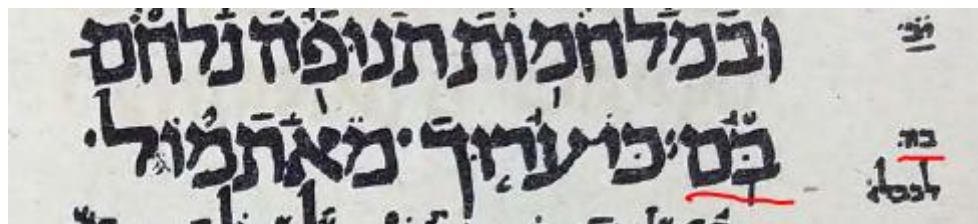 ובמלחמות תנופה נלחם
בם׃ כי ערוך · מאתמול ·